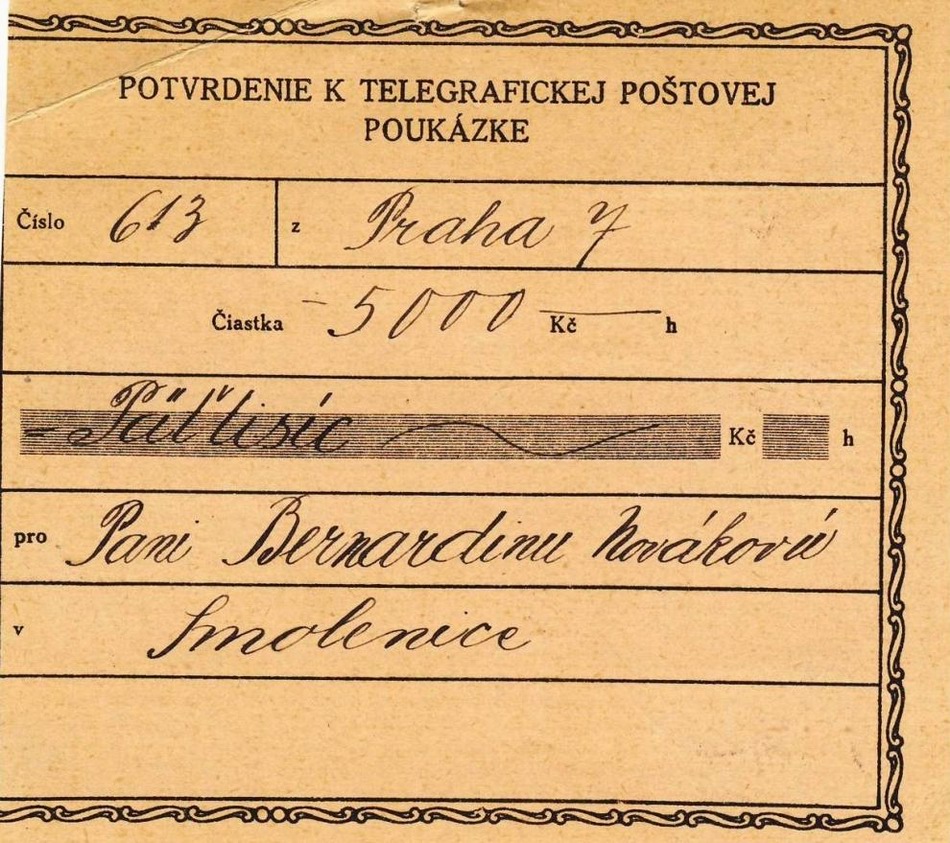 POTVRDENIE K TELEGRAFICKEJ POŠTOVEJ
POUKÁZKE
Číslo 613 z Praha 7
Čiastka - 5000 Kč — h
- Päťtisíc Kč h
pro Pani Bernardinu Novákovú
v Smolenice